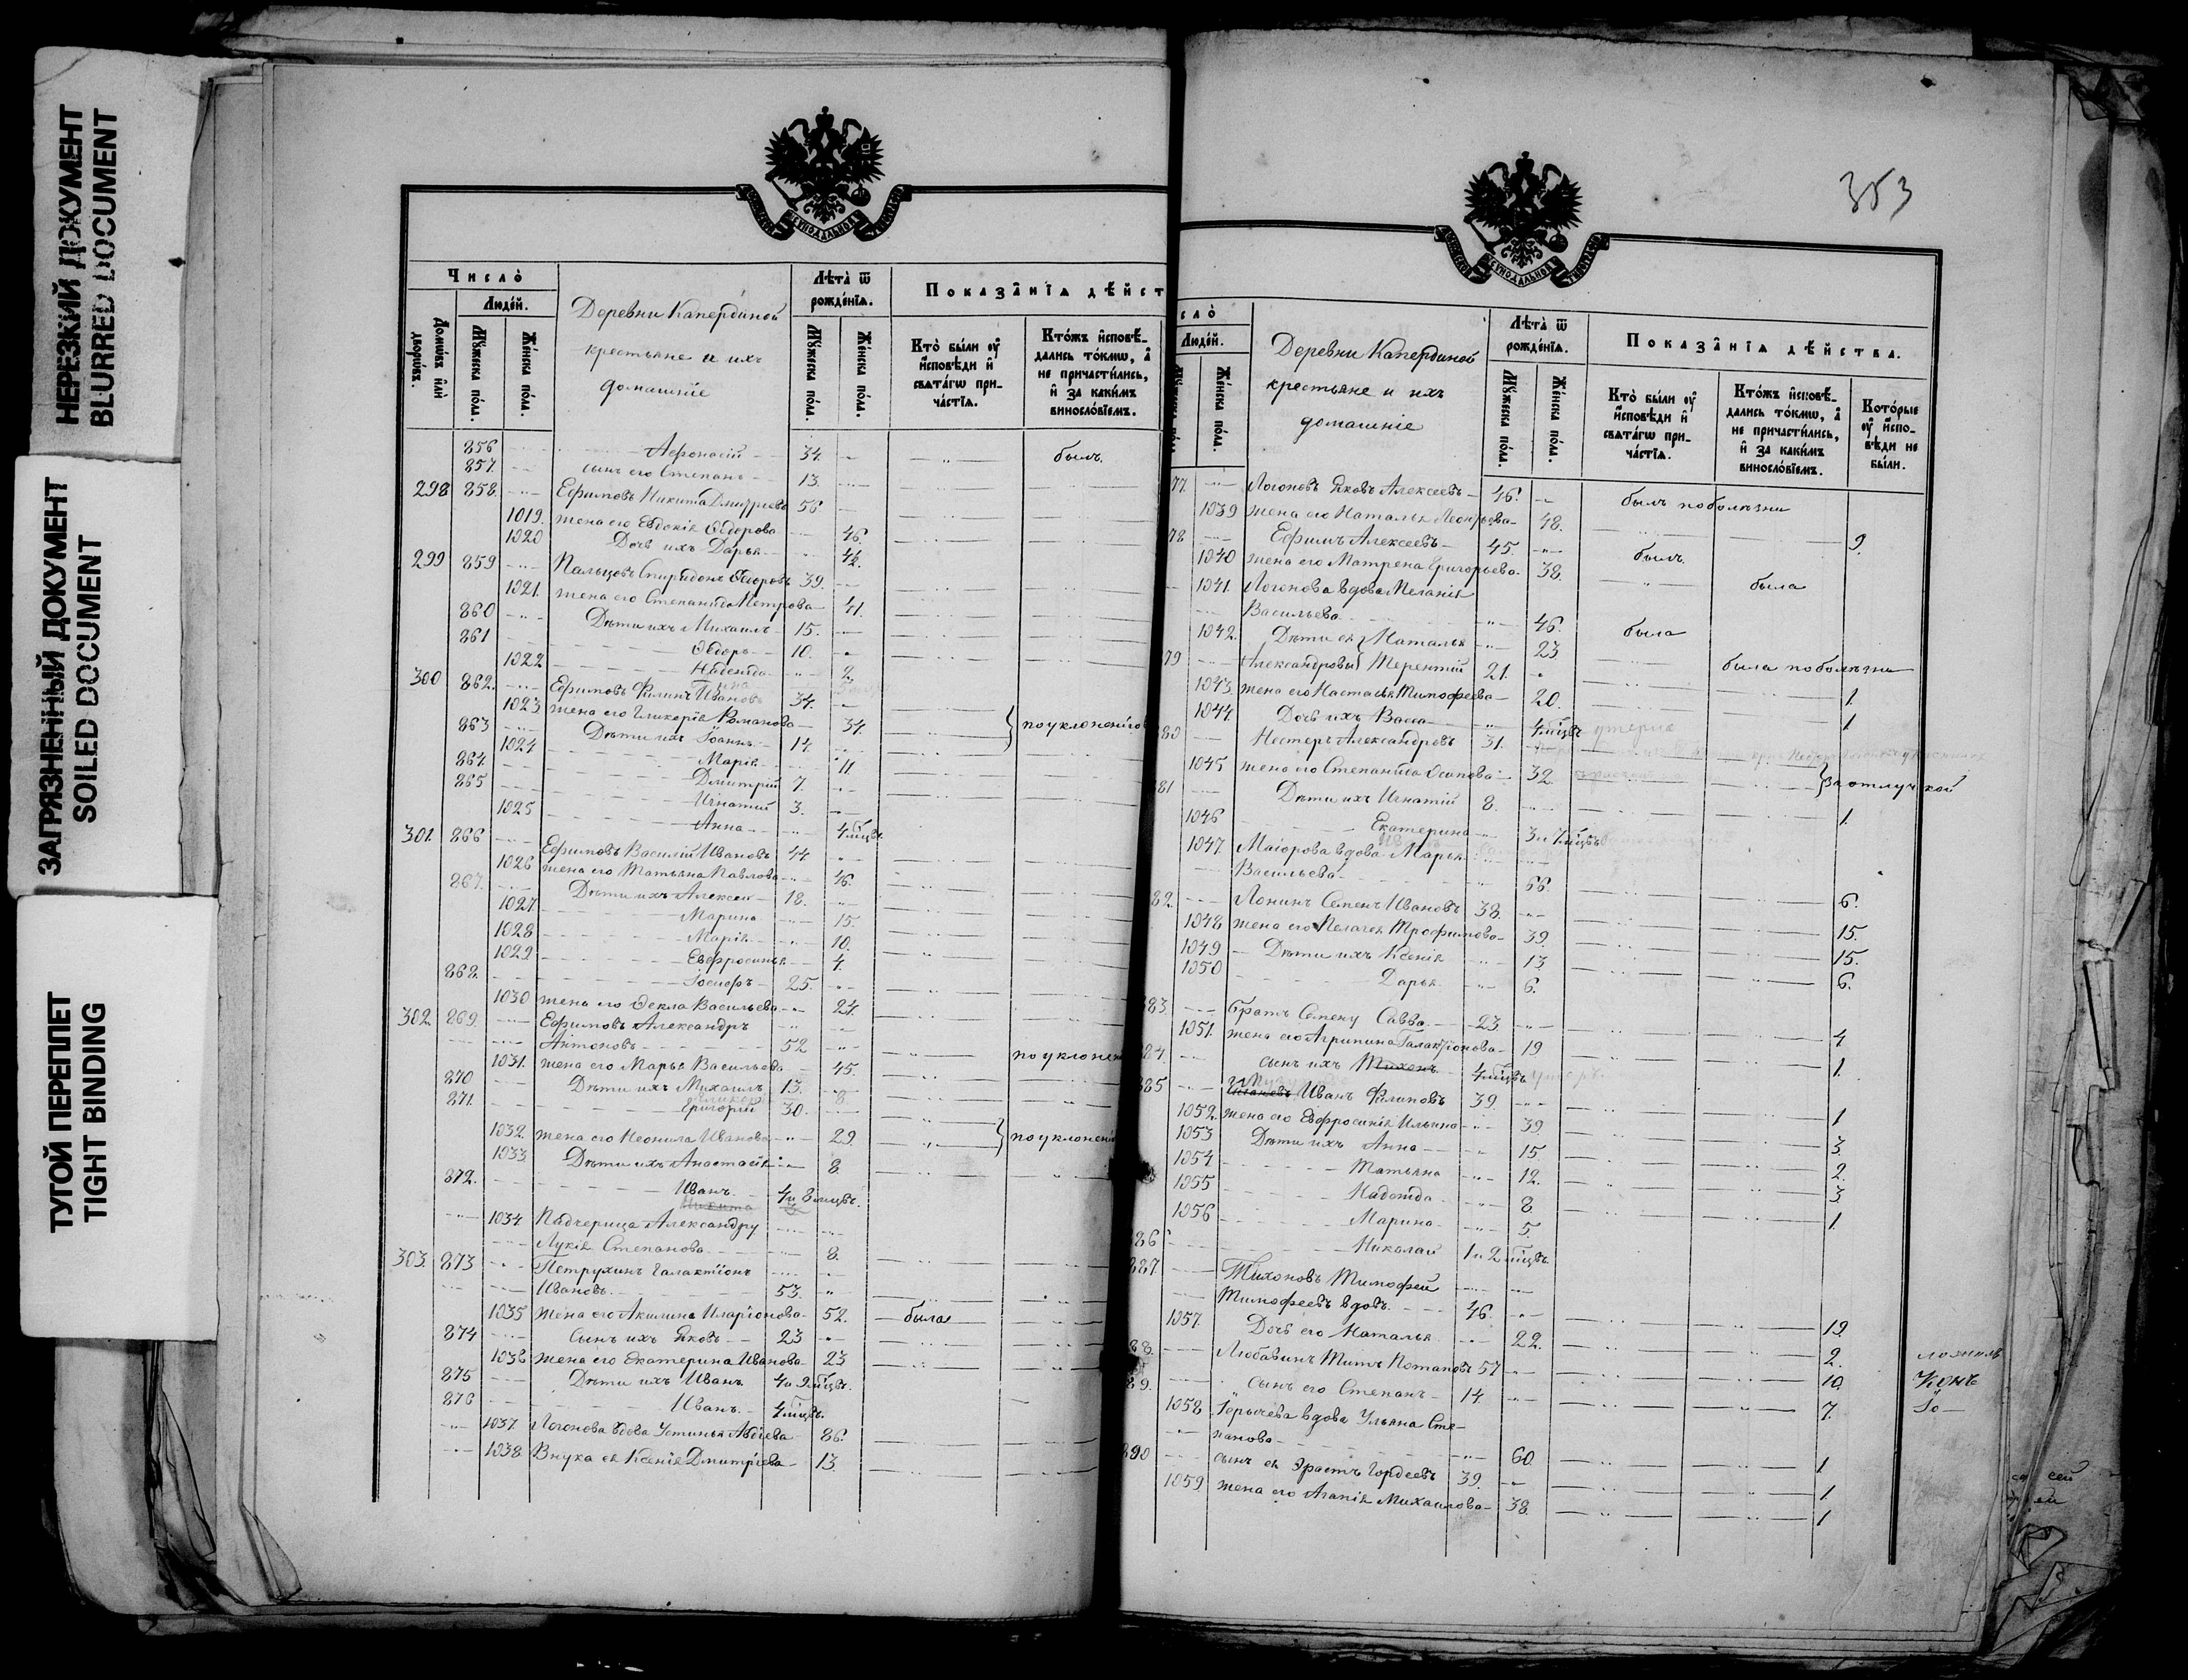 НЕРЕЗКИЙ ДОКУМЕНТ
BLURRED DOCUMENT
ЗАГРЯЗНЕННЫЙ ДОКУМЕНТ
SOILED DOCUMENT
ТУГОЙ ПЕРЕПЛЕТ
TIGHT BINDING
Число̀
Людей.
Домѡвъ и҆лѝ дворѡвъ.
Мꙋжеска пола.
Женска пола.
Деревни Капердиной
крестьяне и ихъ
домашніе
Лѣта̀ ѿ рожденїѧ.
Мꙋжеска пола.
Женска пола.
Показа̑нїѧ дѣйст
Кто̀ были ᲂу҆ и҆сповѣди и҆ свѧтагѡ причастїѧ.
Кто́жъ и҆сповѣдались токмѡ, а҆ не причастились, и҆ за какимъ винословїемъ.
856 Афонасій 34 былъ.
857. сынъ его Степанъ 13.
298 858. Ефимовъ Никита Дмитріевъ 56
1019. жена его Евдокія Ѳедорова 46.
1020 Дочь ихъ Дарья
299 859 Пальцовъ Спиридонъ Ѳедоровъ 39.
1021. жена его Степанида Петрова 41.
860 Дѣти ихъ Михаилъ 15.
861 Ѳедоръ 10.
1022 Надежда 2.
300 862. Ефимовъ Филипъ Ивановъ 34.
1023 жена его Гликерія Романова 34. по уклоненію
863 Дѣти ихъ Іоаннъ 14.
1024 Марія 11
864. Дмитрій 7.
865 Игнатій 3.
1025 Анна 4 мѣсцъ
301. 866 Ефимовъ Василій Ивановъ 44
1026 жена его Татьяна Павлова 46.
867. Дѣти ихъ Алексей 18.
1027 Марина 15.
1028 Марія 10.
1029 Евфросинья 4.
868. Іосифъ 25.
1030 жена его Ѳекла Васильева 24.
302. 869. Ефимовъ Александръ
Антоновъ 52
1031. жена его Марья Васильева 45. по уклонен
870 Дѣти ихъ Михаилъ 13.
871. Григорій 30.
1032. жена его Неонила Иванова 29. по уклонені
1033 Дѣти ихъ Анастасія 8.
872. Иванъ 4 и 8 мѣсцъ.
1034 Падчерица Александру
Лукія Степанова 8.
303. 873 Петрухинъ Галактіонъ
Ивановъ 53.
1035 жена его Акилина Иларіонова 52. была
874 Сынъ ихъ Яковъ 23
1036 жена его Екатерина Иванова 23
875 Дѣти ихъ Иванъ 4 и 9 мѣсцъ.
876 Иванъ. 4 мѣсцъ.
1037. Логонова вдова Устинья Авдіева 86.
1038 Внука ея Ксенія Дмитріева 13.
353
сло̀
Людей.
Мꙋжеска пола.
Женска пола.
Деревни Капердиной
крестьяне и ихъ
домашніе
Лѣта̀ ѿ рожденїѧ.
Мꙋжеска пола.
Женска пола.
Показа̑нїѧ дѣйства.
Кто̀ были ᲂу҆ и҆сповѣди и҆ свѧтагѡ причастїѧ.
Кто́жъ и҆сповѣдались токмѡ, а҆ не причастились, и҆ за какимъ винословїемъ.
Которые ᲂу҆ и҆сповѣди не были.
77. Логоновъ Яковъ Алексеевъ 46. былъ по болѣзни
1039 жена его Наталья Леонтьева 48. 9.
78 Ефимъ Алексеевъ 45. былъ
1040 жена его Матрена Григорьева 38. была
1041. Логонова вдова Меланія
Васильева 46. была
1042. Дѣти ея Наталья 23 была по болѣзни
79 Александровы Терентій 21. 1.
1043. жена его Настасья Тимофеева 20. 1
1044. Дочь ихъ Васса 4 мѣсцъ умерла
80 Нестеръ Александровъ 31.
1045 жена его Степанида Осипова 32. за отлучкой
81 Дѣти ихъ Игнатій 8. 1.
1046 Екатерина 3 и 7 мѣсцъ
1047. Маіорова вдова Марья
Васильева 66. 6.
82. Лонинъ Семенъ Ивановъ 38. 15.
1048 жена его Пелагея Трофимова 39. 15.
1049 Дѣти ихъ Ксенія 13 6.
1050 Дарья 6.
83. Братъ Семену Савва 23 4
1051. жена его Агрипина Галактіонова 19 1.
84. сынъ ихъ Тихонъ 4 мѣсцъ умеръ
885 Иванъ Филиповъ 39. 1
1052. жена его Евфросинія Ильина 39 3
1053 Дѣти ихъ Анна 15 2.
1054 Татьяна 12. 3
1055 Надежда 8. 1
1056 Марина 5.
86 Николай 1 и 2 мѣсцъ.
887. Тихоновъ Тимофей
Тимофеевъ вдовъ 46. 19.
1057. Дочь его Наталья 22. 2.
88. Любавинъ Титъ Потаповъ 57 10.
89. сынъ его Степанъ 14. 7.
1058 Горычева вдова Ульяна Сте-
панова 60. 1
890 сынъ ея Эрастъ Гордеевъ 39. 1
1059. жена его Агапія Михаилова 38. 1